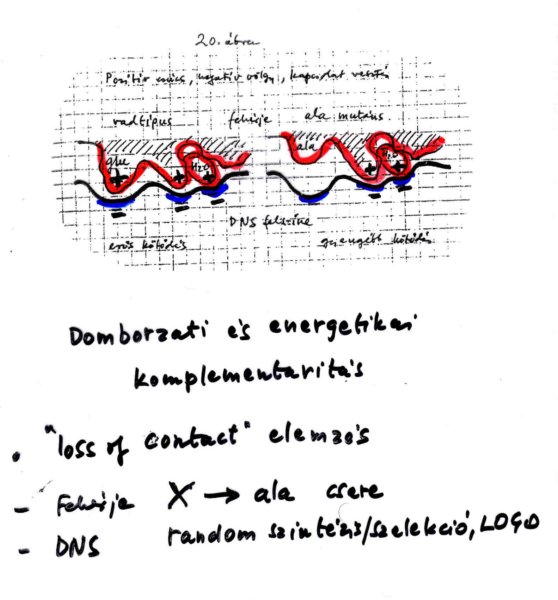 20. ábra
Pozitív csúcs, negatív völgy, kapcsolat vesztés
vadtípus fehérje ala mutáns
glu ala
H2O H2O
+ + + + +
DNS felszíne
erős kötődés gyengébb kötődés
Domborzati és energetikai
komplementaritás
• "loss of contact" elemzés
- Fehérje X → ala csere
- DNS random szintézis/szelekció, LOGO